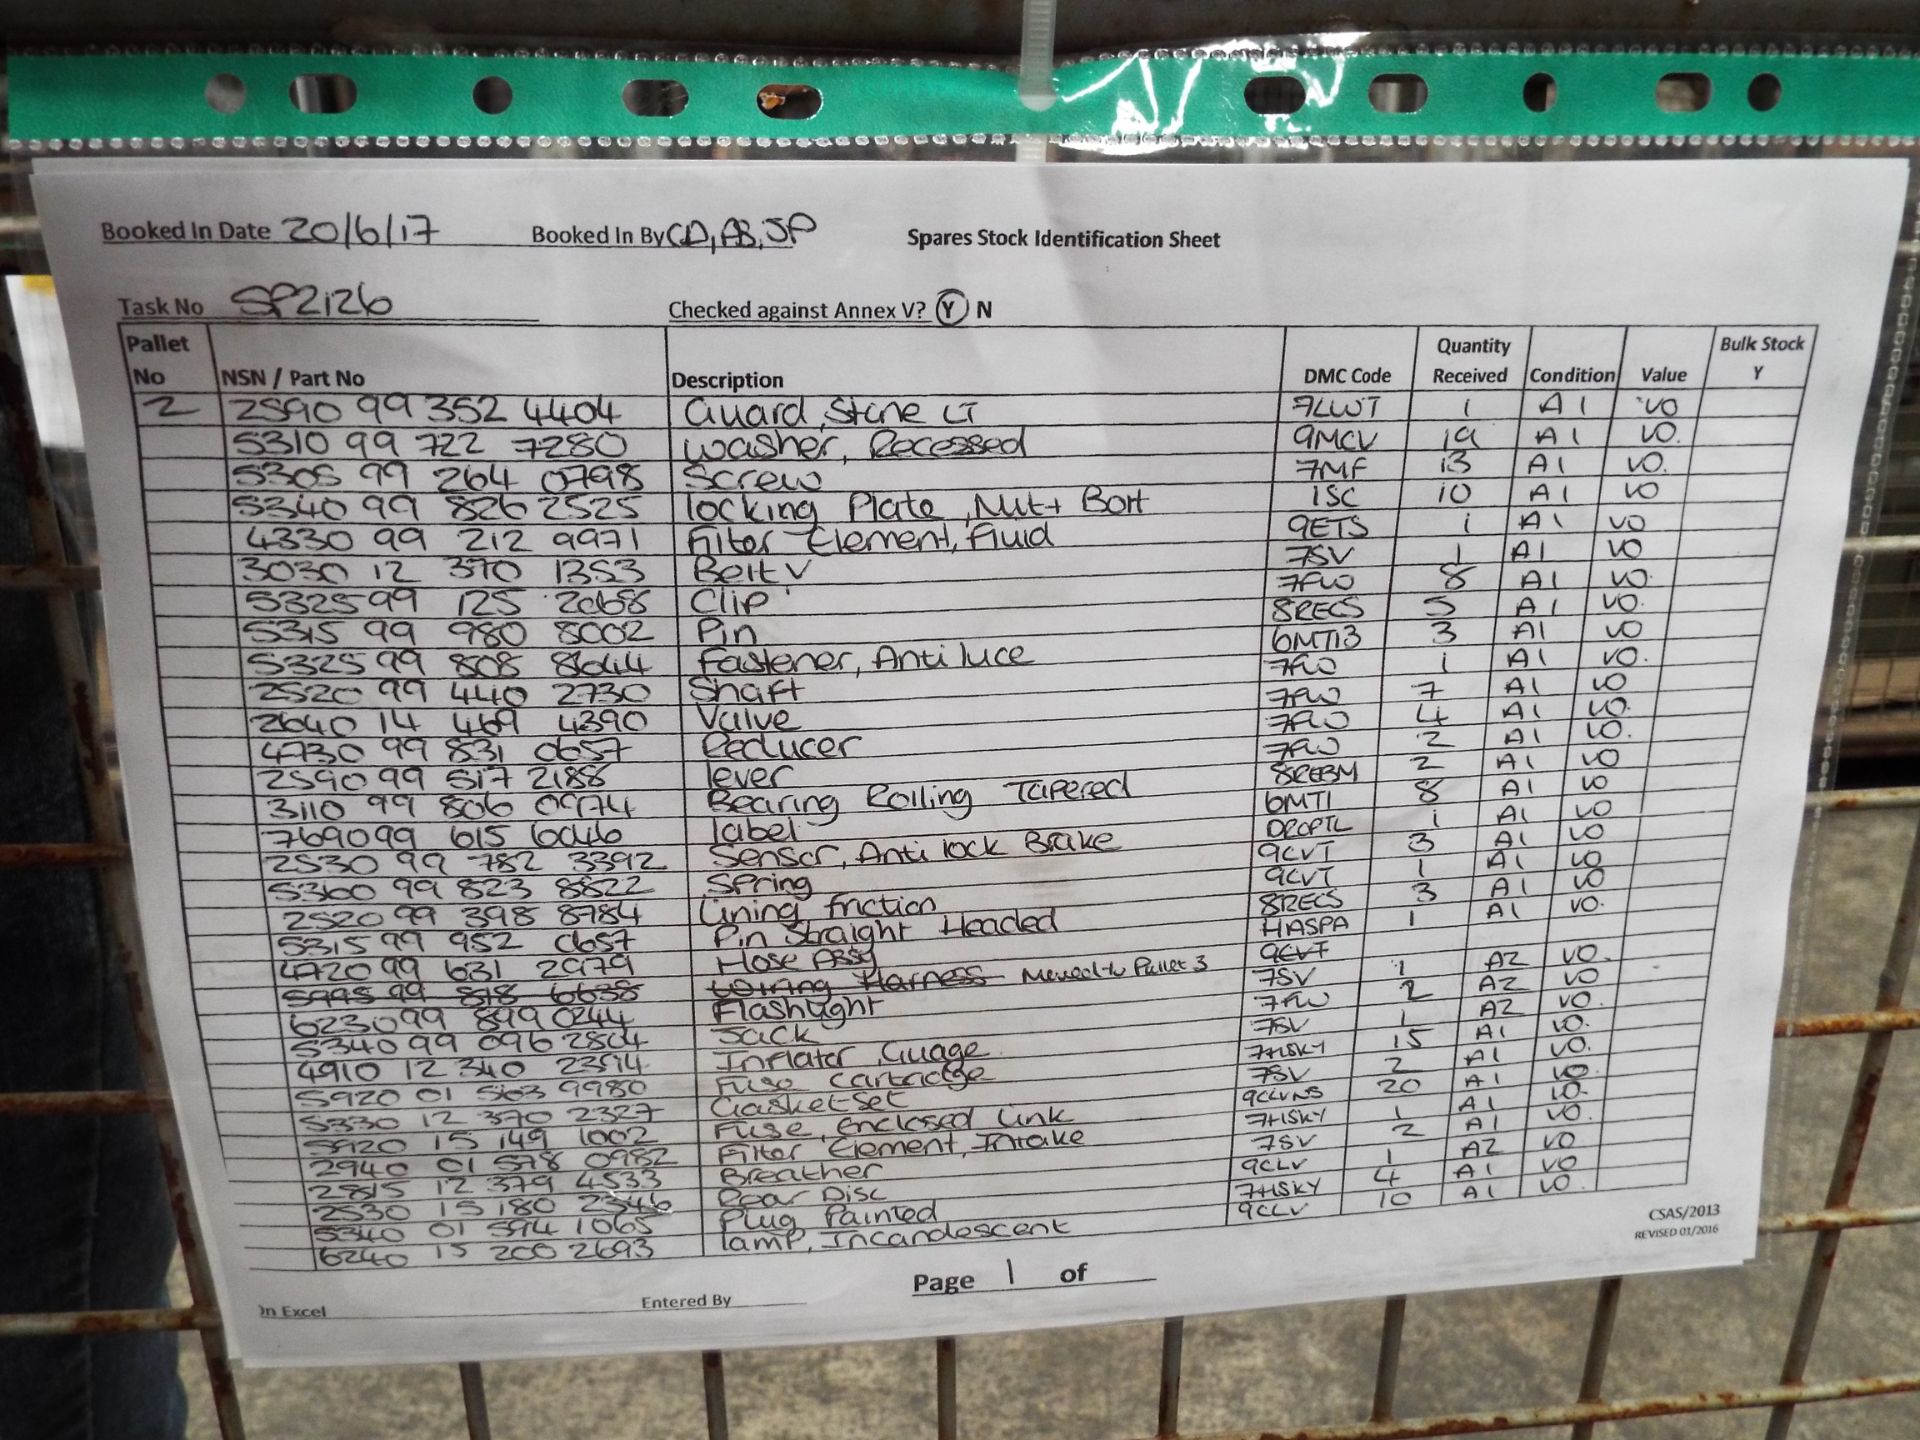 Booked In Date 20/6/17 Booked In By CD, AB, JP Spares Stock Identification Sheet
Task No SP2126 Checked against Annex V? Y N
Pallet No NSN / Part No Description DMC Code Quantity Received Condition Value Bulk Stock Y
2 2590 99 352 4404 Guard, Stone LT 7LWT 1 A1 VO
5310 99 722 7280 Washer, Recessed 9MCV 19 A1 VO.
5305 99 264 0798 Screw 7MF 13 A1 VO.
5340 99 826 2525 locking Plate, Nut + Bolt 1SC 10 A1 VO
4330 99 212 9971 Filter Element, Fluid 9ETS 1 A1 VO
3030 12 370 1353 Belt V 7SV 1 A1 VO
5325 99 125 2068 Clip 7PW 8 A1 VO.
5315 99 980 8002 Pin 8RECS 5 A1 VO.
5325 99 808 8644 Fastener, Anti luce 6MT13 3 A1 VO
2520 99 440 2730 Shaft 7PW 1 A1 VO.
2640 14 469 4390 Valve 7PW 7 A1 VO
4730 99 831 0657 Reducer 7PW 4 A1 VO.
2590 99 517 2188 lever 7PW 2 A1 VO.
3110 99 806 0974 Bearing Rolling Tapered 8REBM 2 A1 VO
7690 99 615 6046 label 6MT1 8 A1 VO
2530 99 782 3392 Sensor, Anti lock Brake DROPTL 1 A1 VO
5360 99 823 8822 Spring 9CVT 3 A1 VO
2520 99 398 8784 Lining friction 9CVT 1 A1 VO
5315 99 952 0657 Pin Straight Headed 8RECS 3 A1 VO
4720 99 631 2979 Hose Assy HASPA 1 A1 VO.
5995 99 878 6638 Wiring Harness Moved to Pallet 3 9CVT
6230 99 899 0244 Flashlight 7SV 1 A2 VO.
5340 99 096 2804 Jack 7PW 2 A2 VO
4910 12 340 2394 Inflator, Guage 7SV 1 A2 VO.
5920 01 563 9980 Fuse Cartridge 7HSKY 15 A1 VO.
5330 12 370 2327 Gasket Set 7SV 2 A1 VO.
5920 15 149 1002 Fuse, Enclosed Link 9CLVNS 20 A1 VO.
2940 01 578 0982 Filter Element, Intake 7HSKY 1 A1 VO.
2815 12 379 4533 Breather 7SV 2 A1 VO.
2530 15 180 2346 Rear Disc 9CLV 1 A2 VO
5340 01 594 1065 Plug Painted 7HSKY 4 A1 VO
6240 15 200 2693 lamp, Incandescent 9CLV 10 A1 VO.
CSAS/2013
REVISED 01/2016
Page 1 of
On Excel Entered By